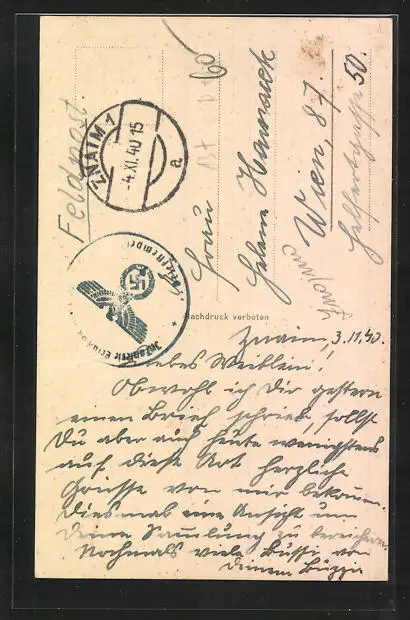 Feldpost
ZNAIM 1
-4.XI.40 15
a
Frau
Wien, 87.
50.
Nachdruck verboten
Znaim, 3.11.40.
Liebes Weiblein!
Obwohl ich Dir gestern
einen Brief schrieb, sollst
Du aber auch heute wenigstens
auf diese Art herzliche
Grüsse von mir bekommen.
Diesmal eine Ansicht um
Deine Sammlung zu bereichern.
Nochmals viele Bussi von
Deinem